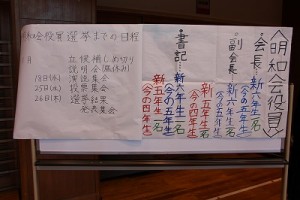 明和会役員選挙までの日程
立候補しめ切り
説明会(昼休み)
18日(水) 演説集会
25日(水) 投票集会
26日(木) 選挙結果
発表集会
《明和会役員》
・会長…新六年生一名
(今の五年生)
・副会長…新六年生一名
(今の五年生)
新五年生一名
(今の四年生)
・書記…新六年生一名
(今の五年生)
新五年生一名
(今の四年生)